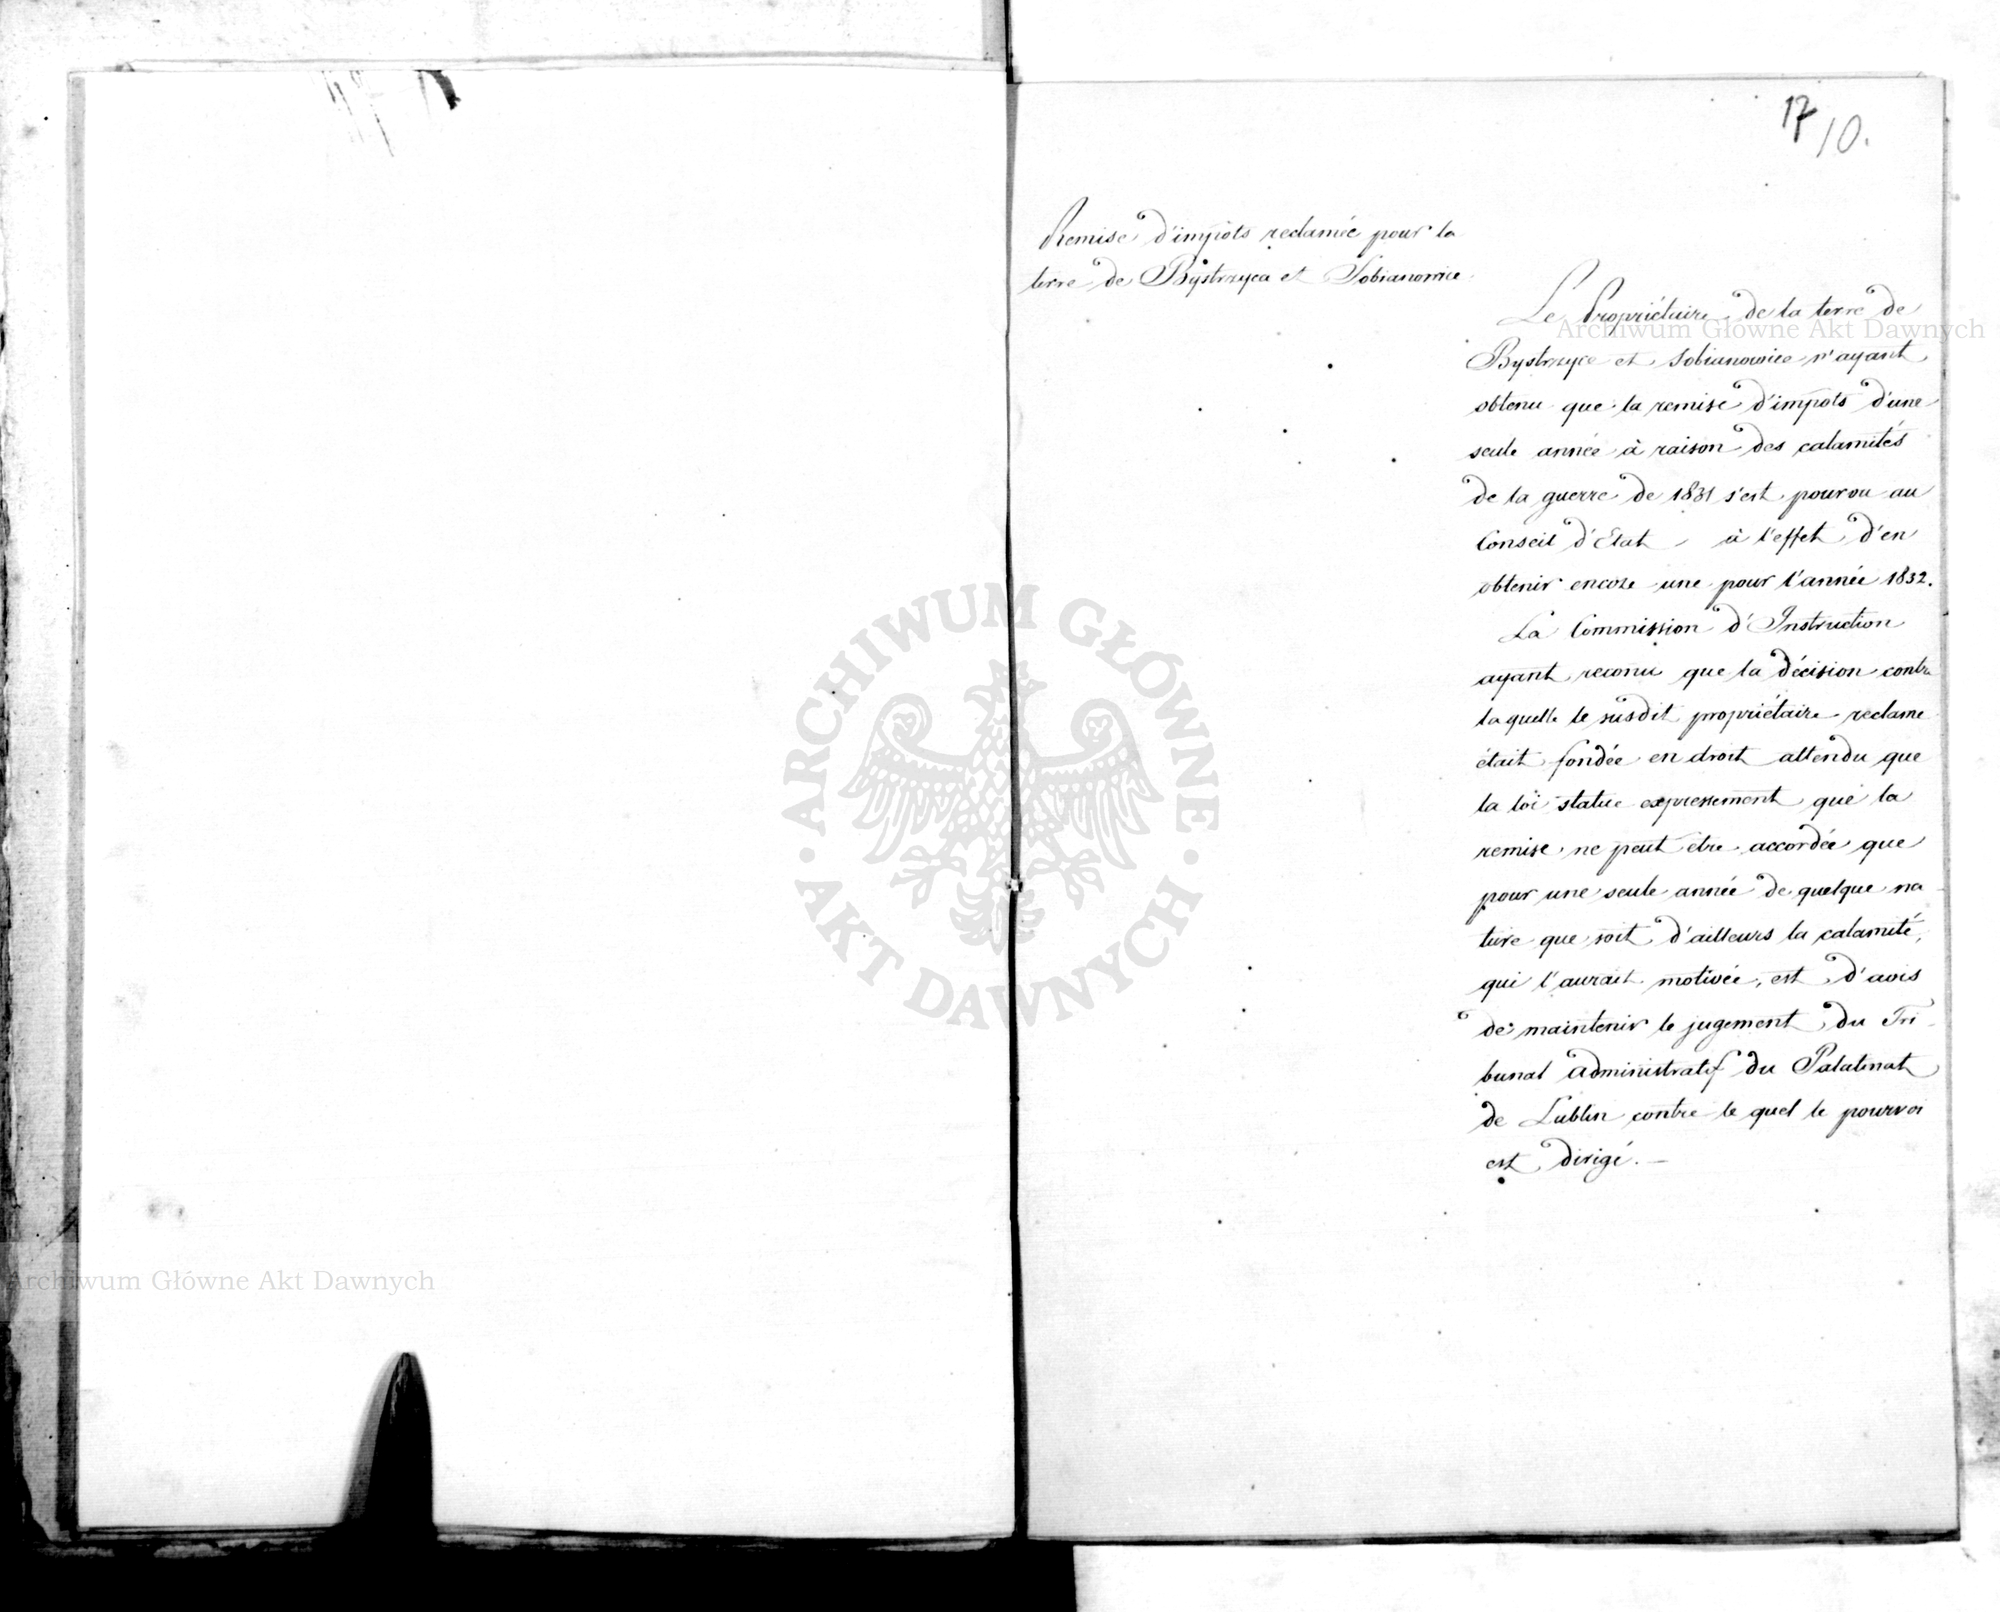 17
10.
Remise d'impots reclamée pour la
terre de Bystrzyca et Sobianowice
Le Propriétaire de la terre de
Bystrzyce et Sobianowice n'ayant
obtenu que la remise d'impots d'une
seule année à raison des calamités
de la guerre de 1831 s'est pourvu au
Conseil d'Etat - à l'effet d'en
obtenir encore une pour l'année 1832.
La Commission d'Instruction
ayant reconu que la décision contre
laquelle le susdit propriétaire reclame
était fondée en droit attendu que
la loi statue expressement que la
remise ne peut être accordée que
pour une seule année de quelque na
ture que soit d'ailleurs la calamité,
qui l'aurait motivée, est d'avis
de maintenir le jugement du Tri
bunal administratif du Palatinat
de Lublin contre le quel le pourvoi
est dirigé. —
Archiwum Główne Akt Dawnych
Archiwum Główne Akt Dawnych
ARCHIWUM GŁÓWNE
· AKT DAWNYCH ·